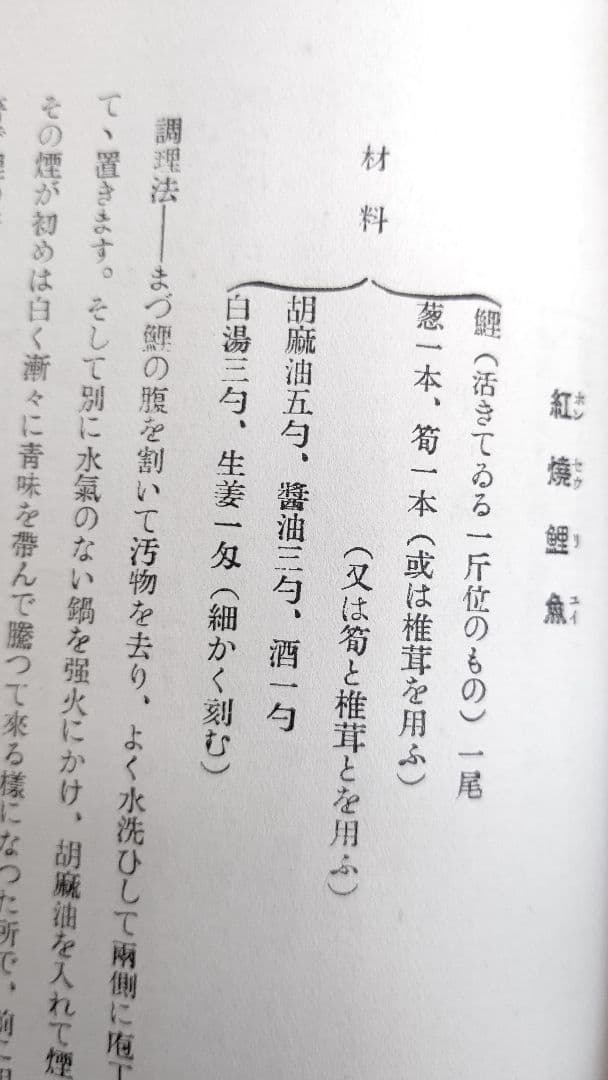 紅燒鯉魚
ホンセウリユイ
材料
鯉(活きてゐる一斤位のもの)一尾
葱一本、筍一本(或は椎茸を用ふ)
(又は筍と椎茸とを用ふ)
胡麻油五勺、醬油三勺、酒一勺
白湯三勺、生姜一匁(細かく刻む)
調理法――まづ鯉の腹を割いて汚物を去り、よく水洗ひして兩側に庖丁
て、置きます。そして別に水氣のない鍋を强火にかけ、胡麻油を入れて煙
その煙が初めは白く漸々に靑味を帶んで騰つて來る樣になつた所で、前に